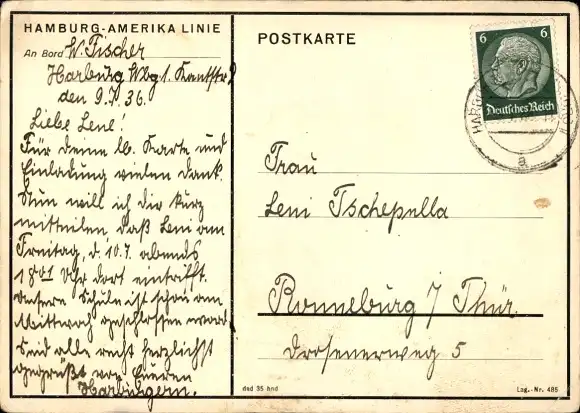 HAMBURG-AMERIKA LINIE
An Bord W. Fischer
Harburg Wbg 1. Kantstr 2
den 9.7.36.
Liebe Lene!
Für deine lb. Karte und
Einladung vielen Dank.
Nun will ich dir kurz
mitteilen, daß Leni am
Freitag, d. 10.7. abends
1801 Uhr dort eintrifft.
Unsere Schule ist schon am
Mittwoch geschlossen word.
Seid alle recht herzlichst
gegrüßt von Eueren
Harburgern.
POSTKARTE
6 6
Deutsches Reich
HARBURG
a
Frau
Leni Tschepella
Ronneburg / Thür.
Drosenerweg 5
ded 35 hnd
Lag.-Nr. 485